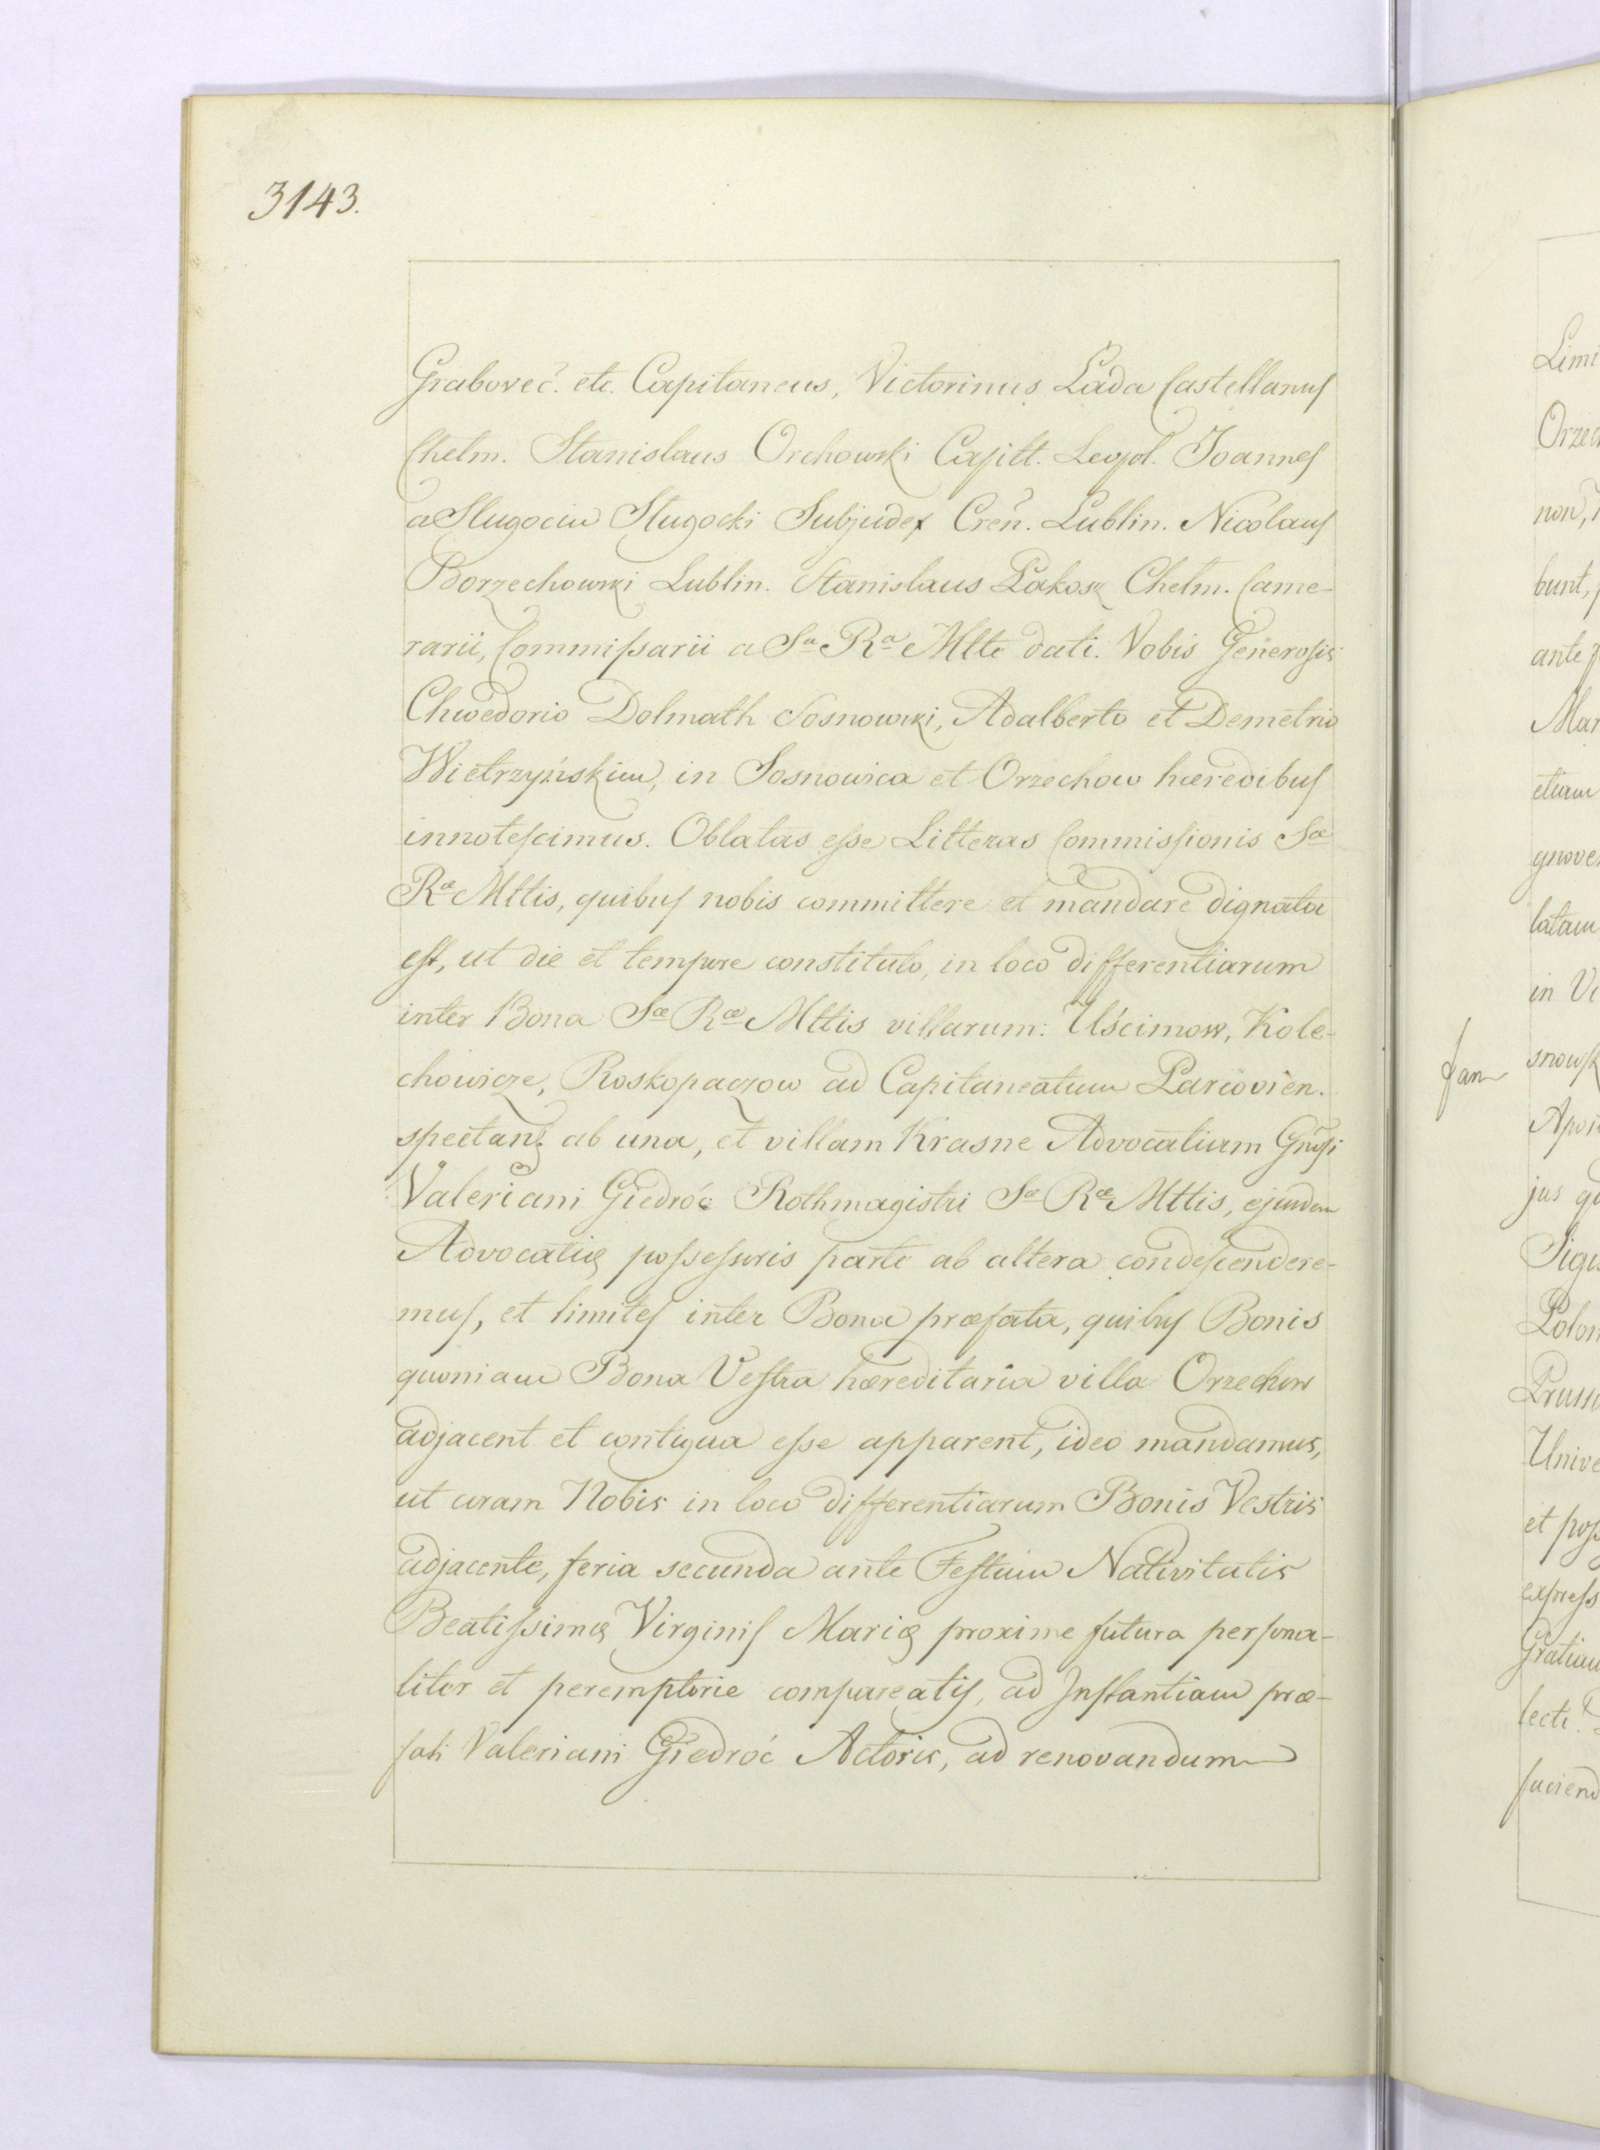 3143.
Grabovec̃. etc. Capitaneus, Victorinus Łada Castellanus
Chelm. Stanislaus Orchowski Capitt. Leopol. Joannes
a Slugociu Slugocki Subjudex Creñ. Lublin. Nicolaus
Borzechowski Lublin. Stanislaus Łakosz Chelm. Came-
rarii, Commissarii a Sa Ra Mtte dati. Vobis Generosis
Chwedorio Dolmath Sosnowski, Adalberto et Demetrio
Wietrzyńskim, in Sosnowica et Orzechow hæredibus
innotescimus. Oblatas esse Litteras Commissionis Sæ
Ræ Mttis, quibus nobis committere et mandare dignata
est, ut die et tempore constituto, in loco differentiarum
inter Bona Sæ Ræ Mttis villarum: Uścimow, Kole-
chowicze, Roskopaczow ad Capitaneatum Parcovien.
spectanz ab una, et villam Krasne Advocatiam Gnosi
Valeriani Giedróć Rothmagistri Sæ Ræ Mttis, ejusdem
Advocatię possessoris parte ab altera condescendere-
mus, et limites inter Bona præfata, quibus Bonis
quoniam Bona Vestra hæreditaria villa Orzechow
adjacent et contigua esse apparent, ideo mandamus,
ut coram Nobis in loco differentiarum Bonis Vestris
adjacente, feria secunda ante Festum Nativitatis
Beatissimę Virginis Marię proxime futura persona-
liter et peremptorie compareatis, ad Instantiam præ-
fati Valeriani Giedróć Actoris, ad renovandum
Limi
Orzec
non,
bunt,
ante
Mar
etiam
gnove
latam
in Vi
snowsk
fam
Apon
jus qu
Sigi
Polon
Prussi
Unive
et poss
express
Gratium
lecti.
faciend